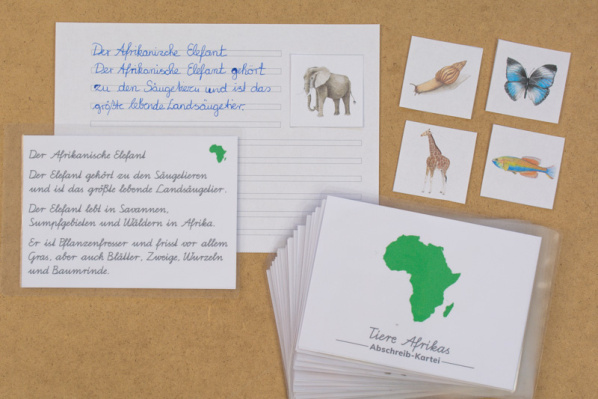 Der Afrikanische Elefant
Der Afrikanische Elefant gehört
zu den Säugetieren und ist das
größte lebende Landsäugetier.
Der Afrikanische Elefant
Der Elefant gehört zu den Säugetieren
und ist das größte lebende Landsäugetier.
Der Elefant lebt in Savannen,
Sumpfgebieten und Wäldern in Afrika.
Er ist Pflanzenfresser und frisst vor allem
Gras, aber auch Blätter, Zweige, Wurzeln
und Baumrinde.
Tiere Afrikas
Abschreib-Kartei